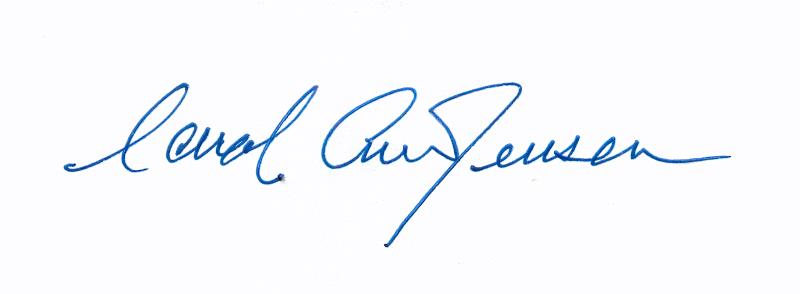 Carol Ann Jensen